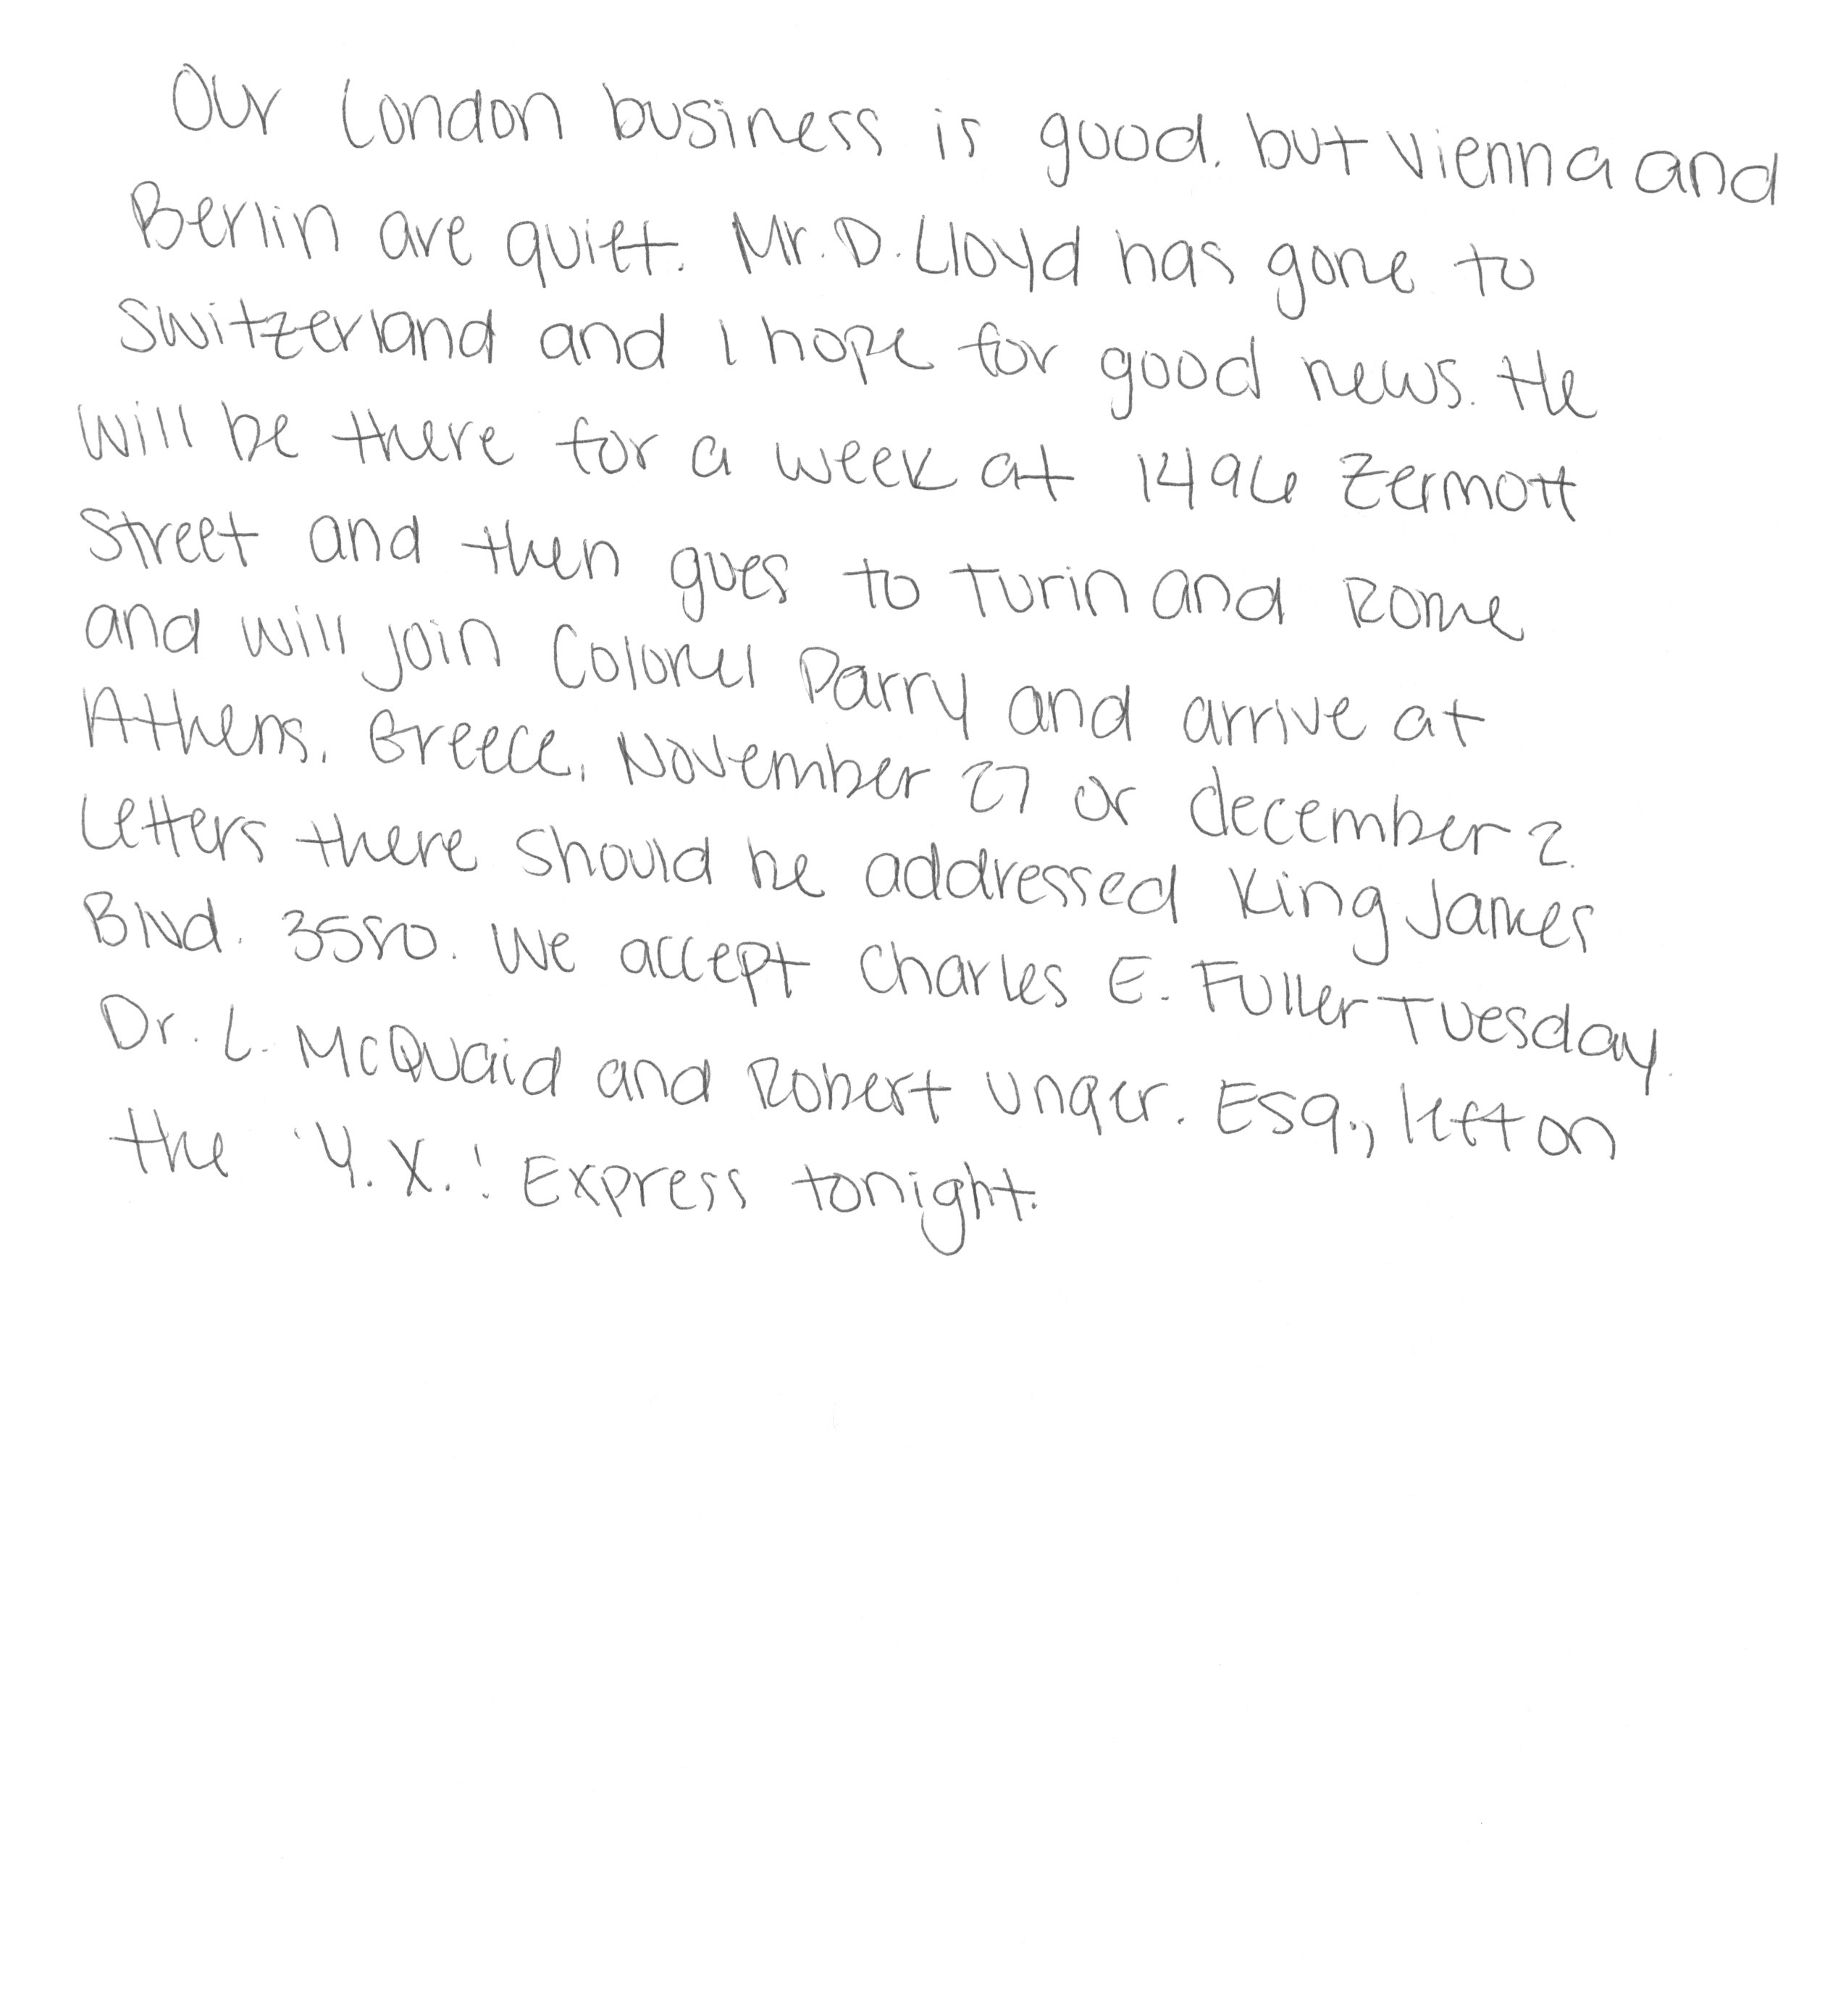 Our London business is good, but Vienna and
Berlin are quiet. Mr. D. Lloyd has gone to
Switzerland and I hope for good news. He
will be there for a week at 1496 Zermott
Street and then goes to Turin and Rome
and will join Colonel Parry and arrive at
Athens, Greece, November 27 or december 2.
Letters there should be addressed King James
Blvd. 3580. We accept Charles E. Fuller Tuesday.
Dr. L. McQuaid and Robert Unger. Esq., left on
the 'Y. X.' Express tonight.